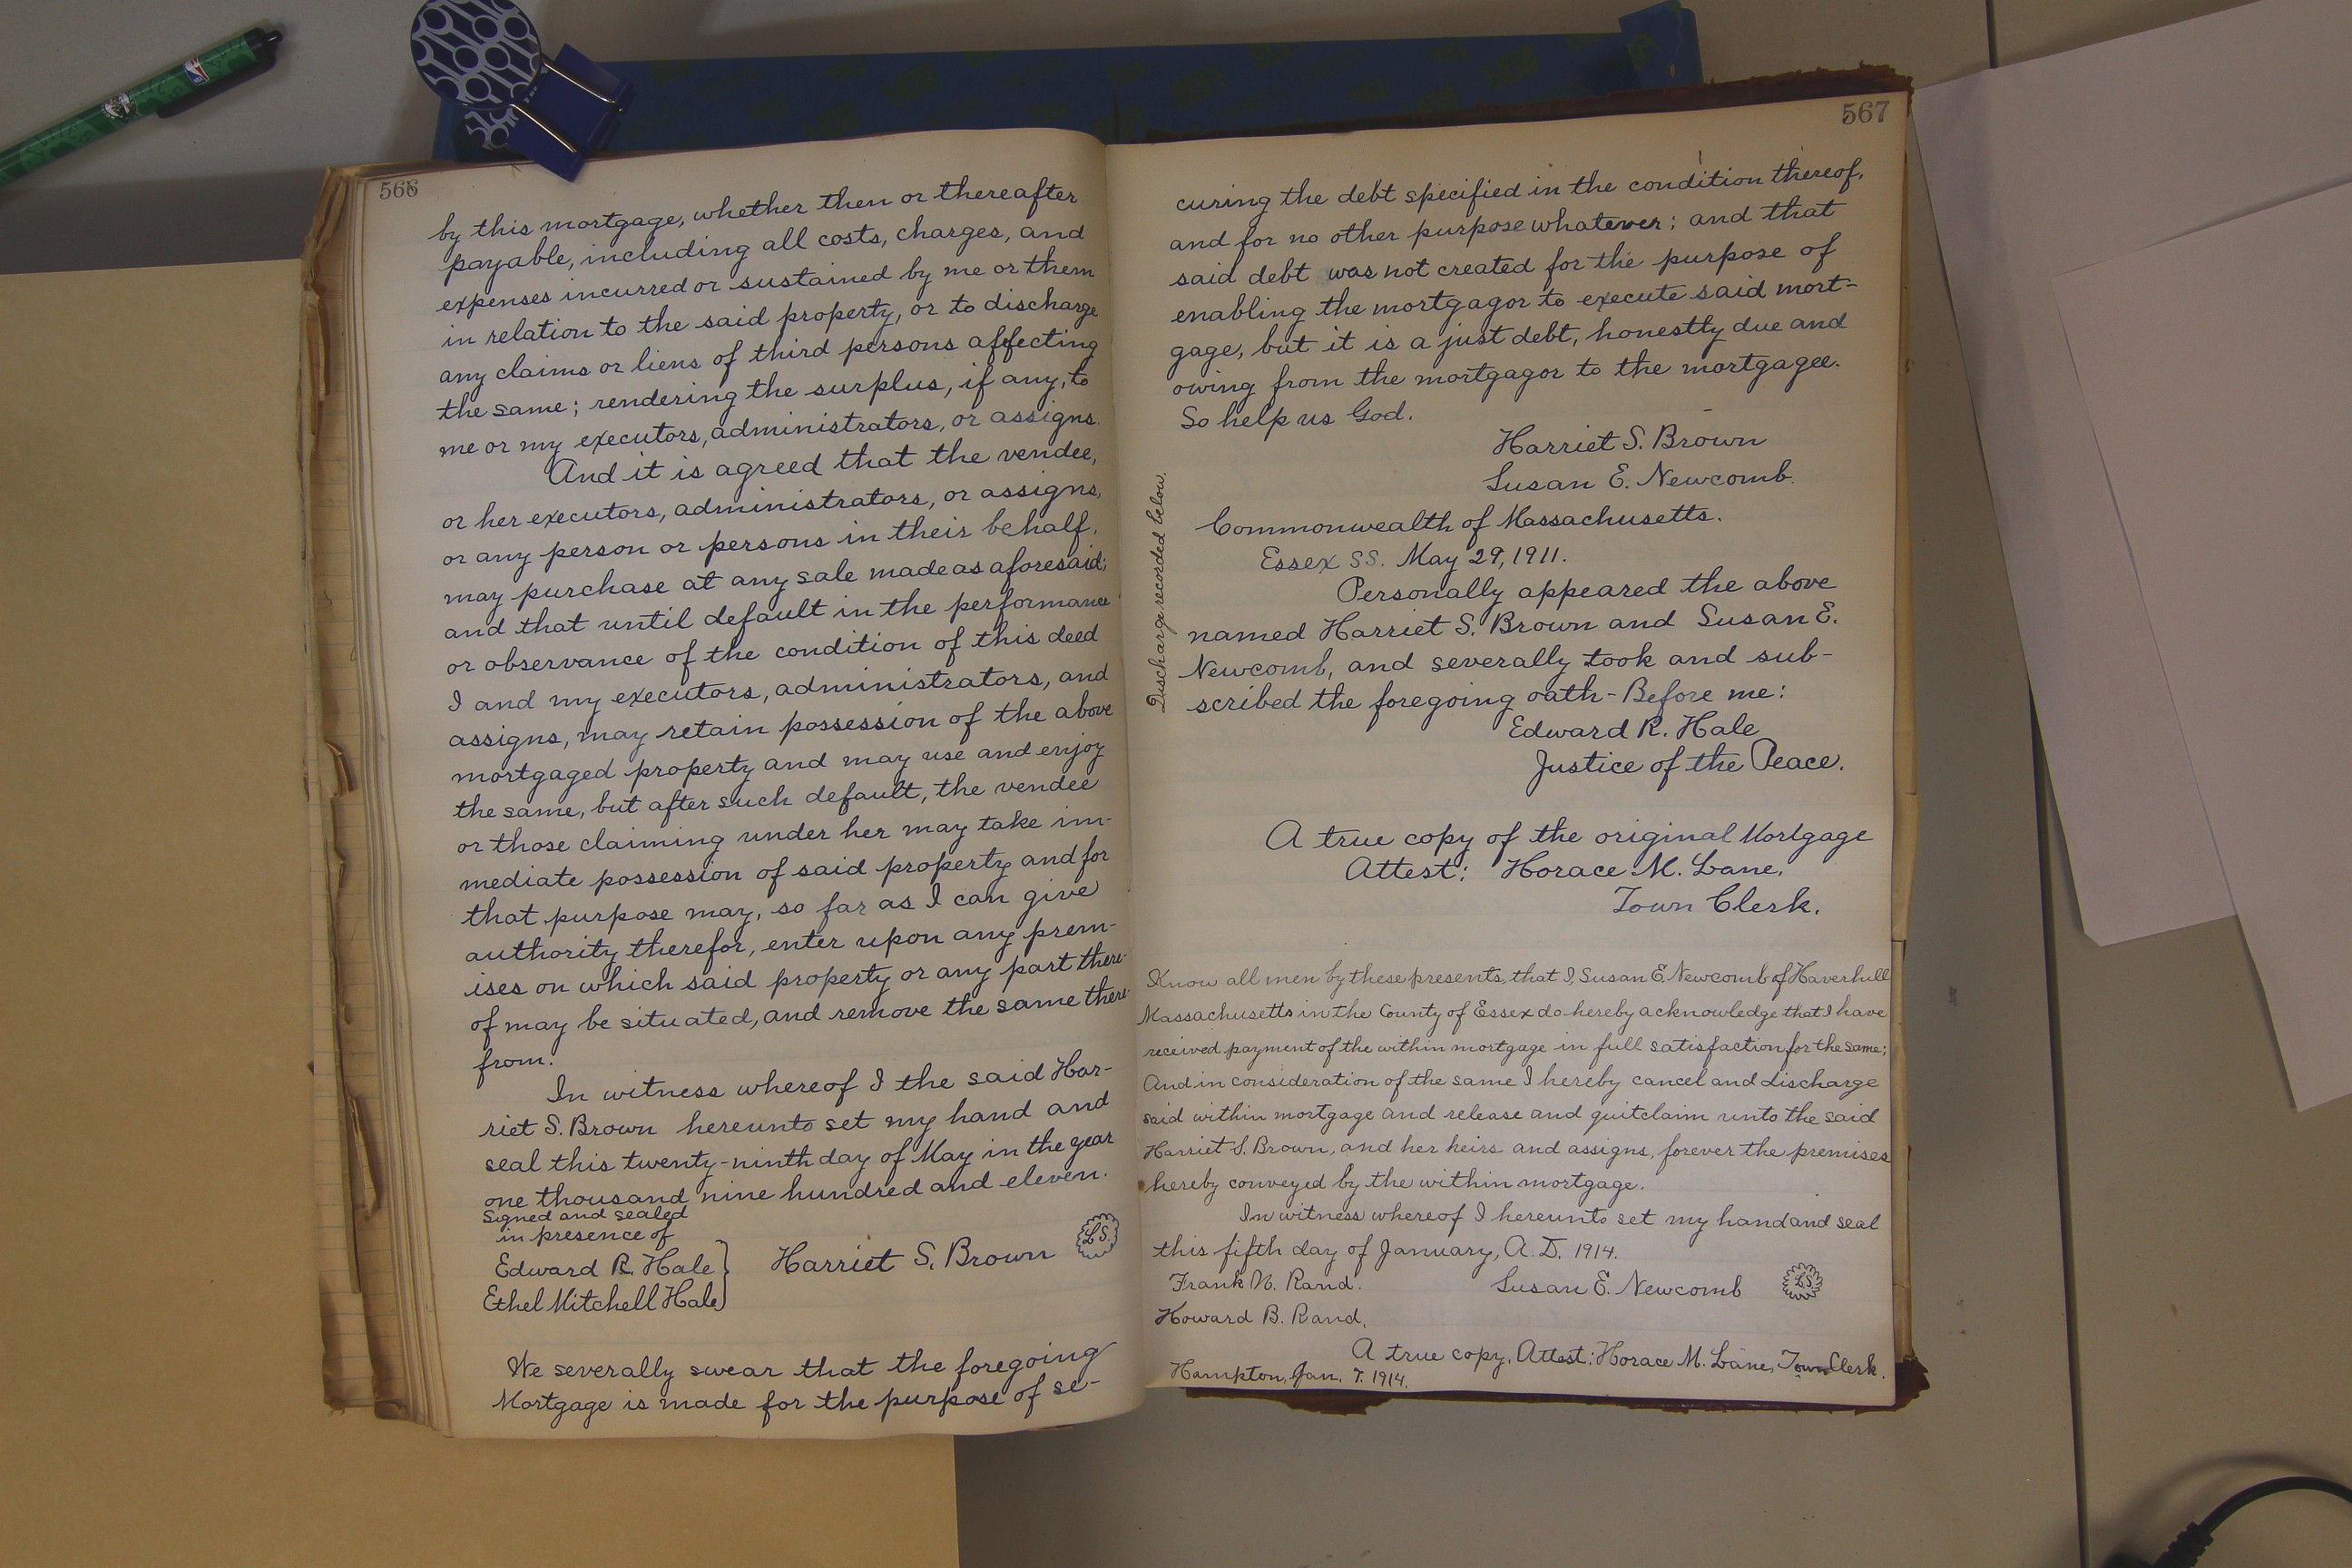 566
by this mortgage, whether then or thereafter
payable, including all costs, charges, and
expenses incurred or sustained by me or them
in relation to the said property, or to discharge
any claims or liens of third persons affecting
the same; rendering the surplus, if any, to
me or my executors, administrators, or assigns.
And it is agreed that the vendee,
or her executors, administrators, or assigns,
or any person or persons in their behalf,
may purchase at any sale made as aforesaid;
and that until default in the performance
or observance of the condition of this deed
I and my executors, administrators, and
assigns, may retain possession of the above
mortgaged property and may use and enjoy
the same, but after such default, the vendee
or those claiming under her may take im-
mediate possession of said property and for
that purpose may, so far as I can give
authority therefor, enter upon any prem-
ises on which said property or any part there-
of may be situated, and remove the same there-
from.
In witness whereof I the said Har-
riet S. Brown hereunto set my hand and
seal this twenty-ninth day of May in the year
one thousand nine hundred and eleven.
Signed and sealed
in presence of
Edward R. Hale } Harriet S. Brown L.S.
Ethel Mitchell Hale
We severally swear that the foregoing
Mortgage is made for the purpose of se-
567
curing the debt specified in the condition thereof,
and for no other purpose whatever; and that
said debt was not created for the purpose of
enabling the mortgagor to execute said mort-
gage, but it is a just debt, honestly due and
owing from the mortgagor to the mortgagee.
So help us God.
Harriet S. Brown
Susan E. Newcomb.
Discharge recorded below.
Commonwealth of Massachusetts.
Essex SS. May 29, 1911.
Personally appeared the above
named Harriet S. Brown and Susan E.
Newcomb, and severally took and sub-
scribed the foregoing oath - Before me:
Edward R. Hale
Justice of the Peace.
A true copy of the original Mortgage
Attest: Horace M. Lane,
Town Clerk.
Know all men by these presents, that I, Susan E. Newcomb of Haverhill
Massachusetts in the County of Essex do hereby acknowledge that I have
received payment of the within mortgage in full satisfaction for the same;
And in consideration of the same I hereby cancel and discharge
said within mortgage and release and quitclaim unto the said
Harriet S. Brown, and her heirs and assigns, forever the premises
hereby conveyed by the within mortgage.
In witness whereof I hereunto set my hand and seal
this fifth day of January, A.D. 1914.
Frank N. Rand. Susan E. Newcomb L.S.
Howard B. Rand.
A true copy, Attest: Horace M. Lane, Town Clerk.
Hampton, Jan. 7. 1914.